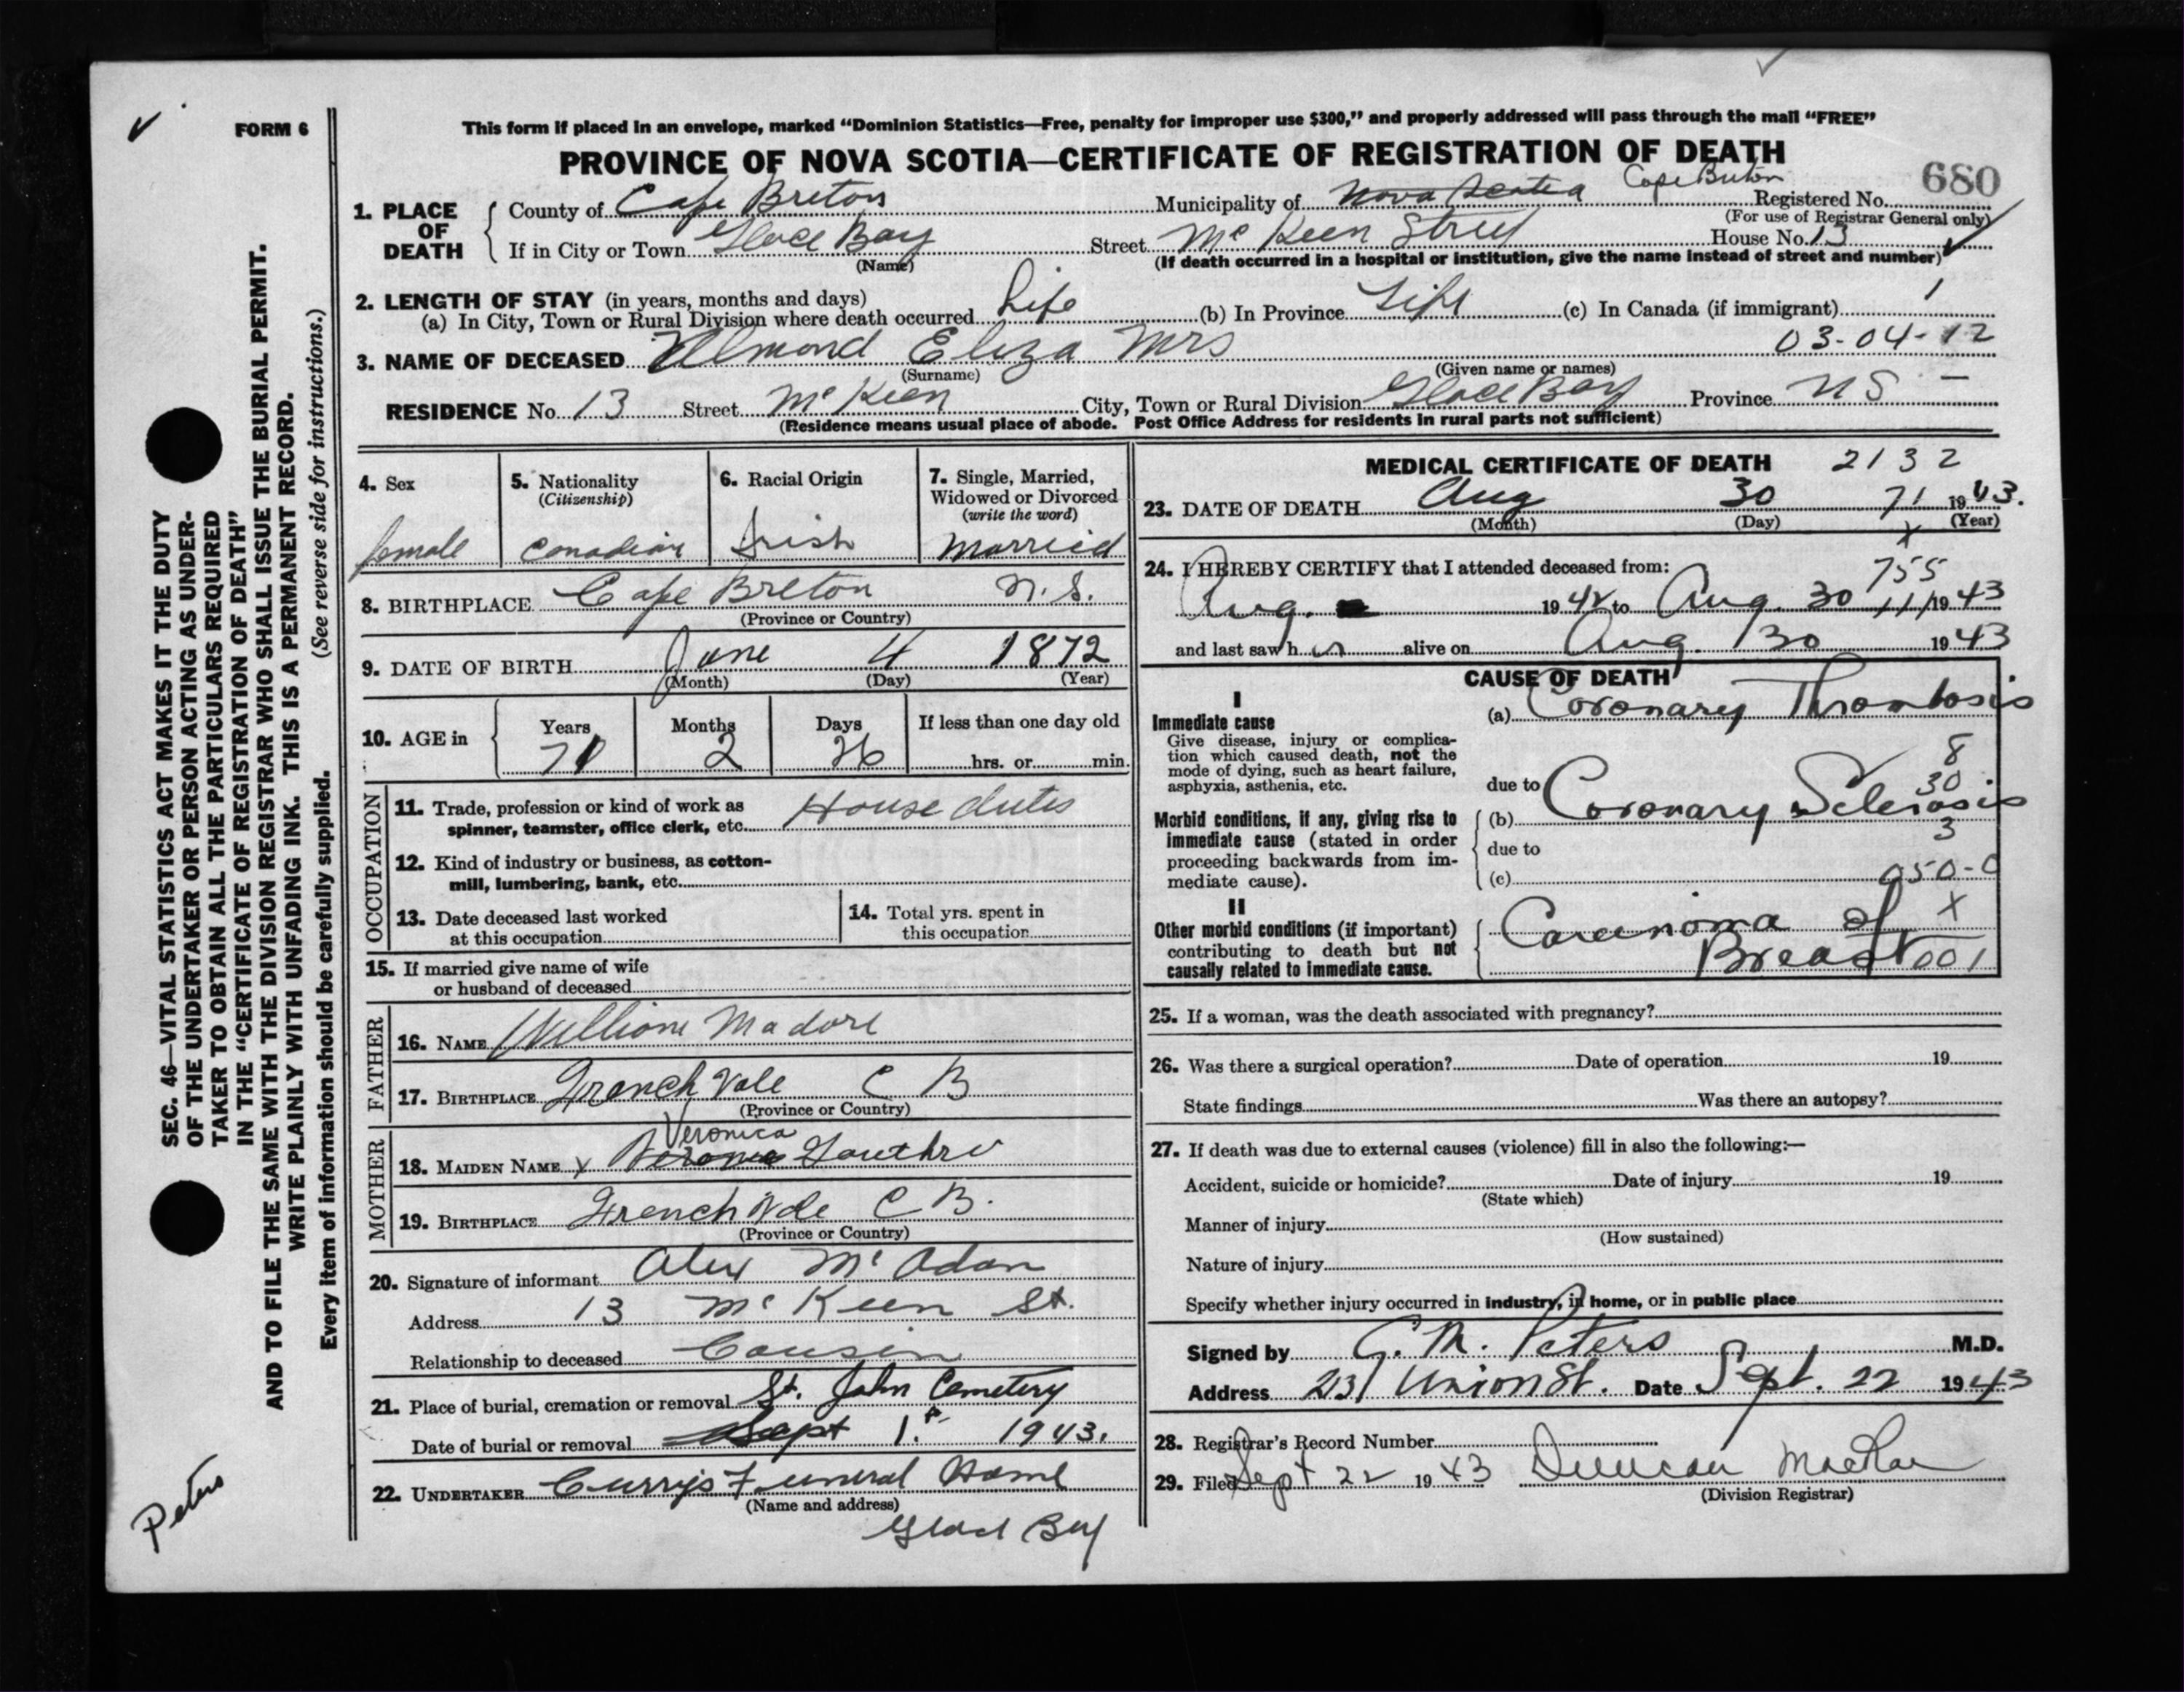 FORM 6
This form if placed in an envelope, marked “Dominion Statistics—Free, penalty for improper use $300,” and properly addressed will pass through the mail “FREE”
PROVINCE OF NOVA SCOTIA—CERTIFICATE OF REGISTRATION OF DEATH
680
1. PLACE OF DEATH
County of Cape Breton Municipality of Nova Scotia Cape Breton Registered No.
(For use of Registrar General only)
If in City or Town Glace Bay Street Mc Keen Street House No. 13
(Name) (If death occurred in a hospital or institution, give the name instead of street and number)
2. LENGTH OF STAY (in years, months and days)
(a) In City, Town or Rural Division where death occurred Life (b) In Province Life (c) In Canada (if immigrant)
3. NAME OF DECEASED Almond Eliza Mrs 03-04-12
(Surname) (Given name or names)
RESIDENCE No. 13 Street Mc Keen City, Town or Rural Division Glace Bay Province N S
(Residence means usual place of abode. Post Office Address for residents in rural parts not sufficient)
4. Sex
female
5. Nationality
(Citizenship)
Canadian
6. Racial Origin
Irish
7. Single, Married,
Widowed or Divorced
(write the word)
Married
8. BIRTHPLACE Cape Breton N.S.
(Province or Country)
9. DATE OF BIRTH June 4 1872
(Month) (Day) (Year)
10. AGE in
Years Months Days If less than one day old
71 2 26 hrs. or min.
OCCUPATION
11. Trade, profession or kind of work as
spinner, teamster, office clerk, etc. House duties
12. Kind of industry or business, as cotton-
mill, lumbering, bank, etc.
13. Date deceased last worked
at this occupation
14. Total yrs. spent in
this occupation
15. If married give name of wife
or husband of deceased
FATHER
16. NAME William Madore
17. BIRTHPLACE French Vale C B
(Province or Country)
MOTHER
Veronica
18. MAIDEN NAME Gouthro
19. BIRTHPLACE French Vale C B.
(Province or Country)
20. Signature of informant Alex Mc Adam
Address 13 Mc Keen St.
Relationship to deceased Cousin
21. Place of burial, cremation or removal St. John Cemetery
Date of burial or removal Sept 1. 1943.
22. UNDERTAKER Currys Funeral Home
(Name and address)
Glace Bay
MEDICAL CERTIFICATE OF DEATH 2132
23. DATE OF DEATH Aug 30 71 1943.
(Month) (Day) (Year)
24. I HEREBY CERTIFY that I attended deceased from:
755
Aug. 1942 to Aug. 30 1943
and last saw her alive on Aug. 30 1943
CAUSE OF DEATH
I
Immediate cause
Give disease, injury or complica-
tion which caused death, not the
mode of dying, such as heart failure,
asphyxia, asthenia, etc.
(a) Coronary Thrombosis
8
30
due to
Morbid conditions, if any, giving rise to
immediate cause (stated in order
proceeding backwards from im-
mediate cause).
(b) Coronary Sclerosis
3
due to
(c) 050-0
II
Other morbid conditions (if important)
contributing to death but not
causally related to immediate cause.
Carcinoma of X
Breast 001
25. If a woman, was the death associated with pregnancy?
26. Was there a surgical operation? Date of operation 19
State findings Was there an autopsy?
27. If death was due to external causes (violence) fill in also the following:—
Accident, suicide or homicide? Date of injury 19
(State which)
Manner of injury
(How sustained)
Nature of injury
Specify whether injury occurred in industry, in home, or in public place
Signed by C. M. Peters M.D.
Address 231 Union St. Date Sept. 22 1943
28. Registrar's Record Number
29. Filed Sept 22 1943 Duncan MacRae
(Division Registrar)
SEC. 46—VITAL STATISTICS ACT MAKES IT THE DUTY
OF THE UNDERTAKER OR PERSON ACTING AS UNDER-
TAKER TO OBTAIN ALL THE PARTICULARS REQUIRED
IN THE “CERTIFICATE OF REGISTRATION OF DEATH”
AND TO FILE THE SAME WITH THE DIVISION REGISTRAR WHO SHALL ISSUE THE BURIAL PERMIT.
WRITE PLAINLY WITH UNFADING INK. THIS IS A PERMANENT RECORD.
Every item of information should be carefully supplied. (See reverse side for instructions.)
Peters